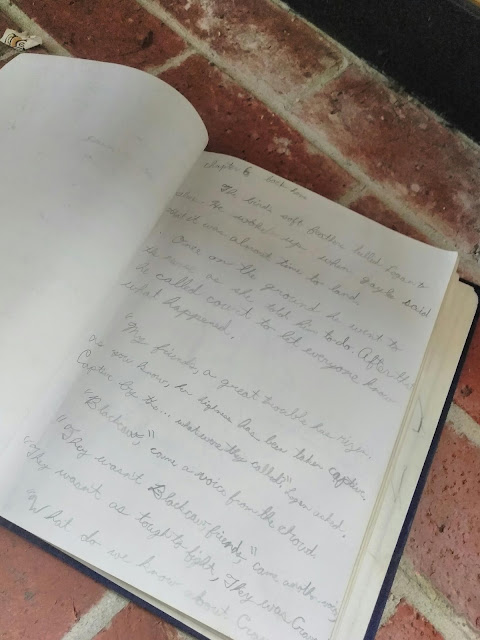 Chapter 6
The birds soft feathers lulled
He woke up when Gayle said
that it was almost time to land.
Once on the ground he went to
the nurse as she told him to do. After th
he called court to let everyone know
what happened.
"My friends, a great trouble has risen.
as you know, her highness has been taken captive.
Captive by the... what were they called?" asked.
"Blackcraw," came a voice from the crowd.
"They wasn't Blackcraw friends," came another
"They wasn't as tough to fight, They was
"What do we know about